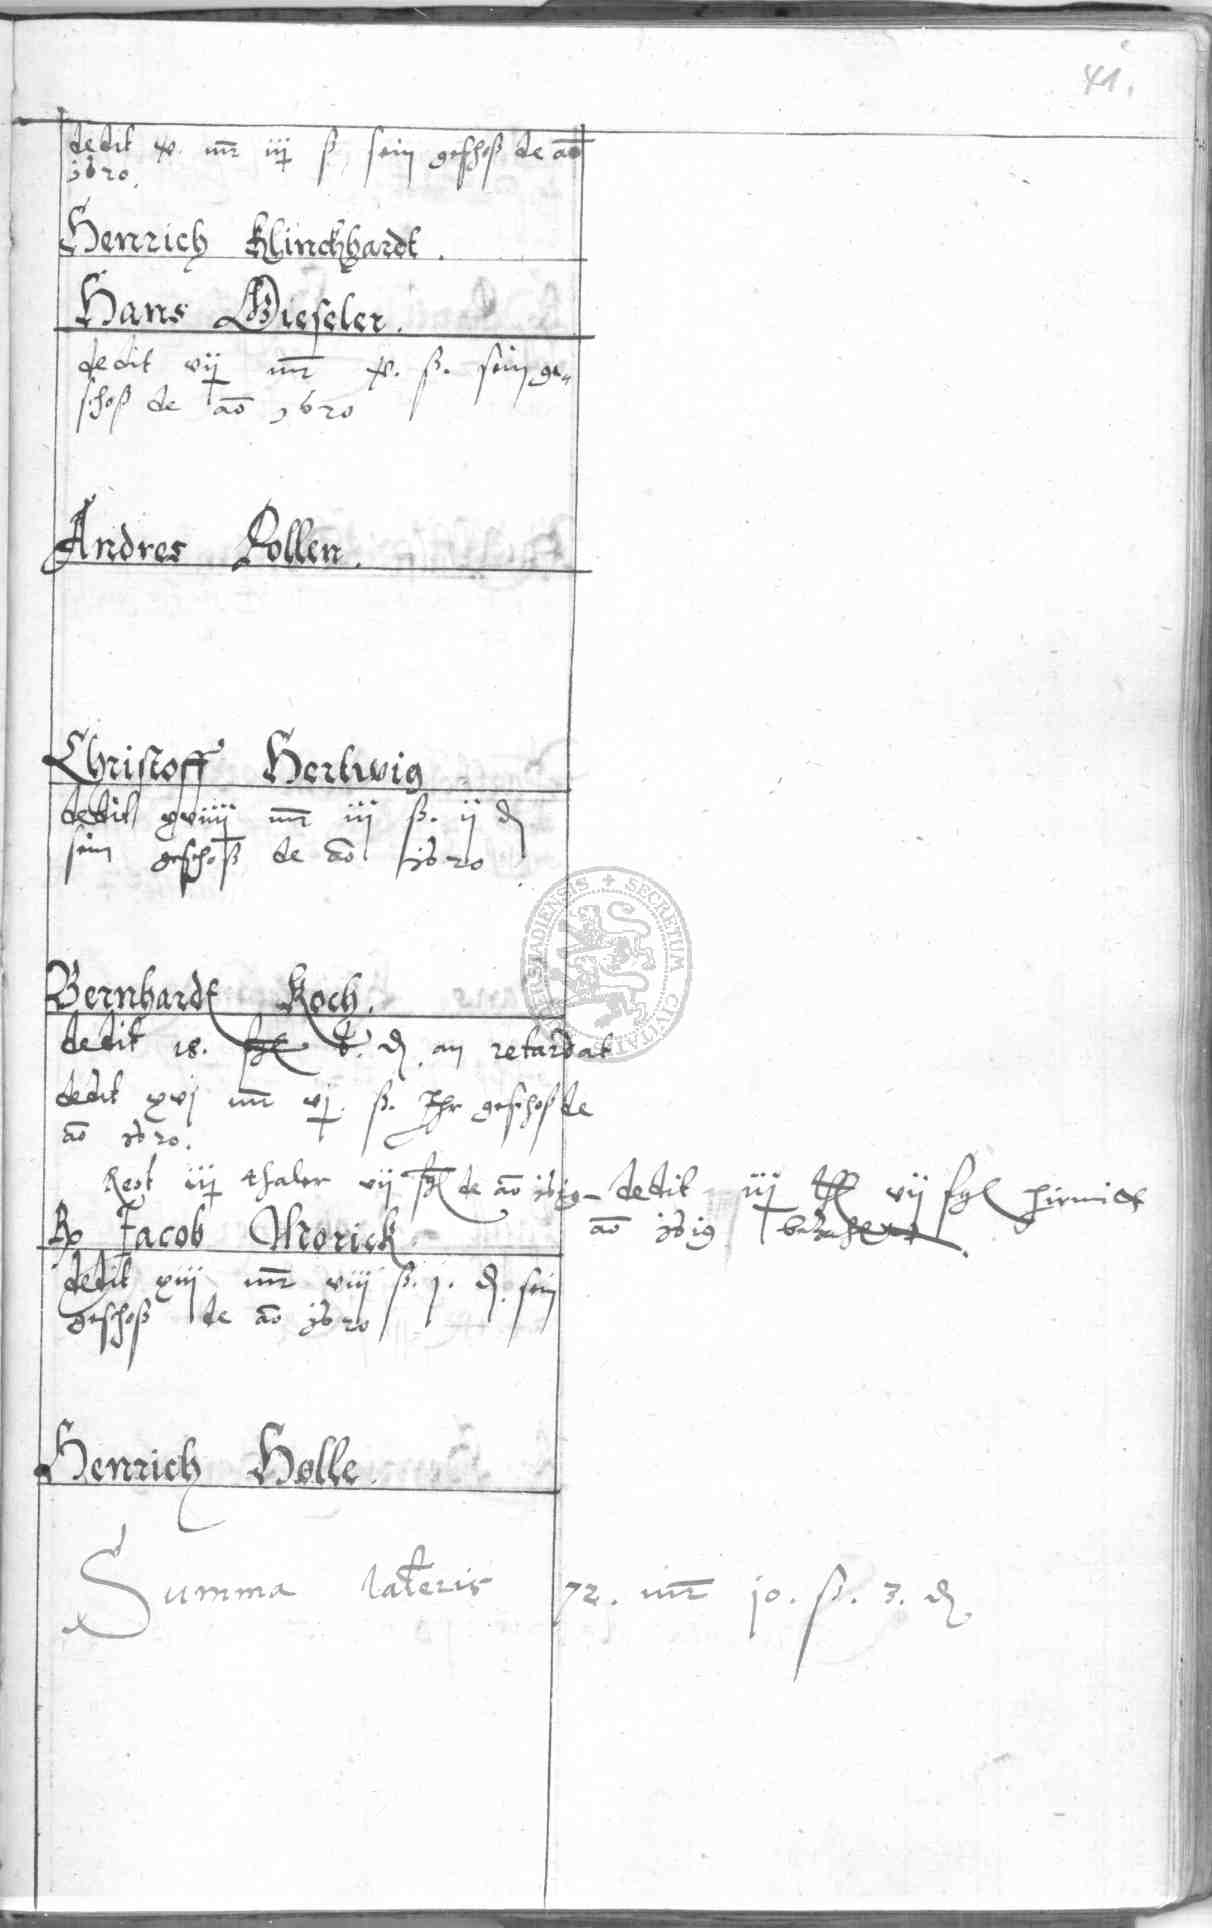 41.
dedit x. mr iij ß sein geschoß de ao
1620.
Henrich Klinckhardt.
Hans Wieseler.
dedit vij mr x. ß. sein ge„
schoß de ao 1620
Andres Rollen.
Christoff Hertwig
dedit xviiij mr iij ß. ij d
sein geschoß de ao 1620
Bernhardt Koch.
dedit 18. d. an retardat
dedit xvj mr vj. ß. Ihr geschoß de
ao 1620.
Rest iij thaler vij sgl de ao 1619 dedit iij thl vij sgl hirmitt
ao 1619 bezahlt.
Jacob Morick
dedit xiij mr viij ß. j. d. sein
geschoß de ao 1620
Henrich Holle.
Summa lateris 72. mr 10. ß. 3. d.
SECRETUM CIVITATIS HALBERSTADIENSIS